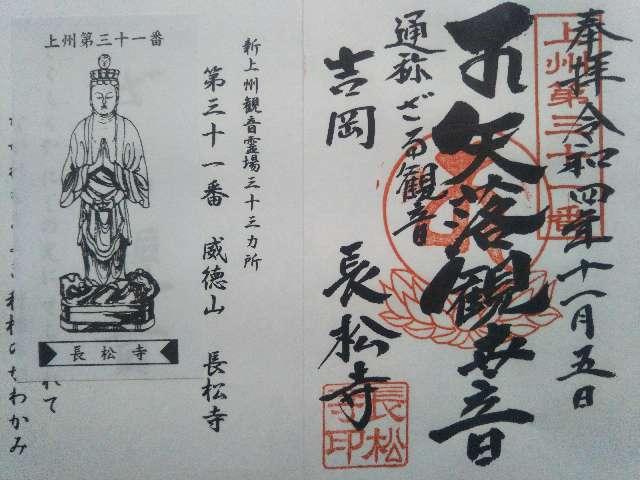 奉拝 令和四年十一月五日
上州第三十一番
不矢落観世音
通称ざる観音
吉岡 長松寺
長松寺印
新上州観音霊場三十三カ所
第三十一番 威徳山 長松寺
上州第三十一番
長松寺
れて
ちわかみ